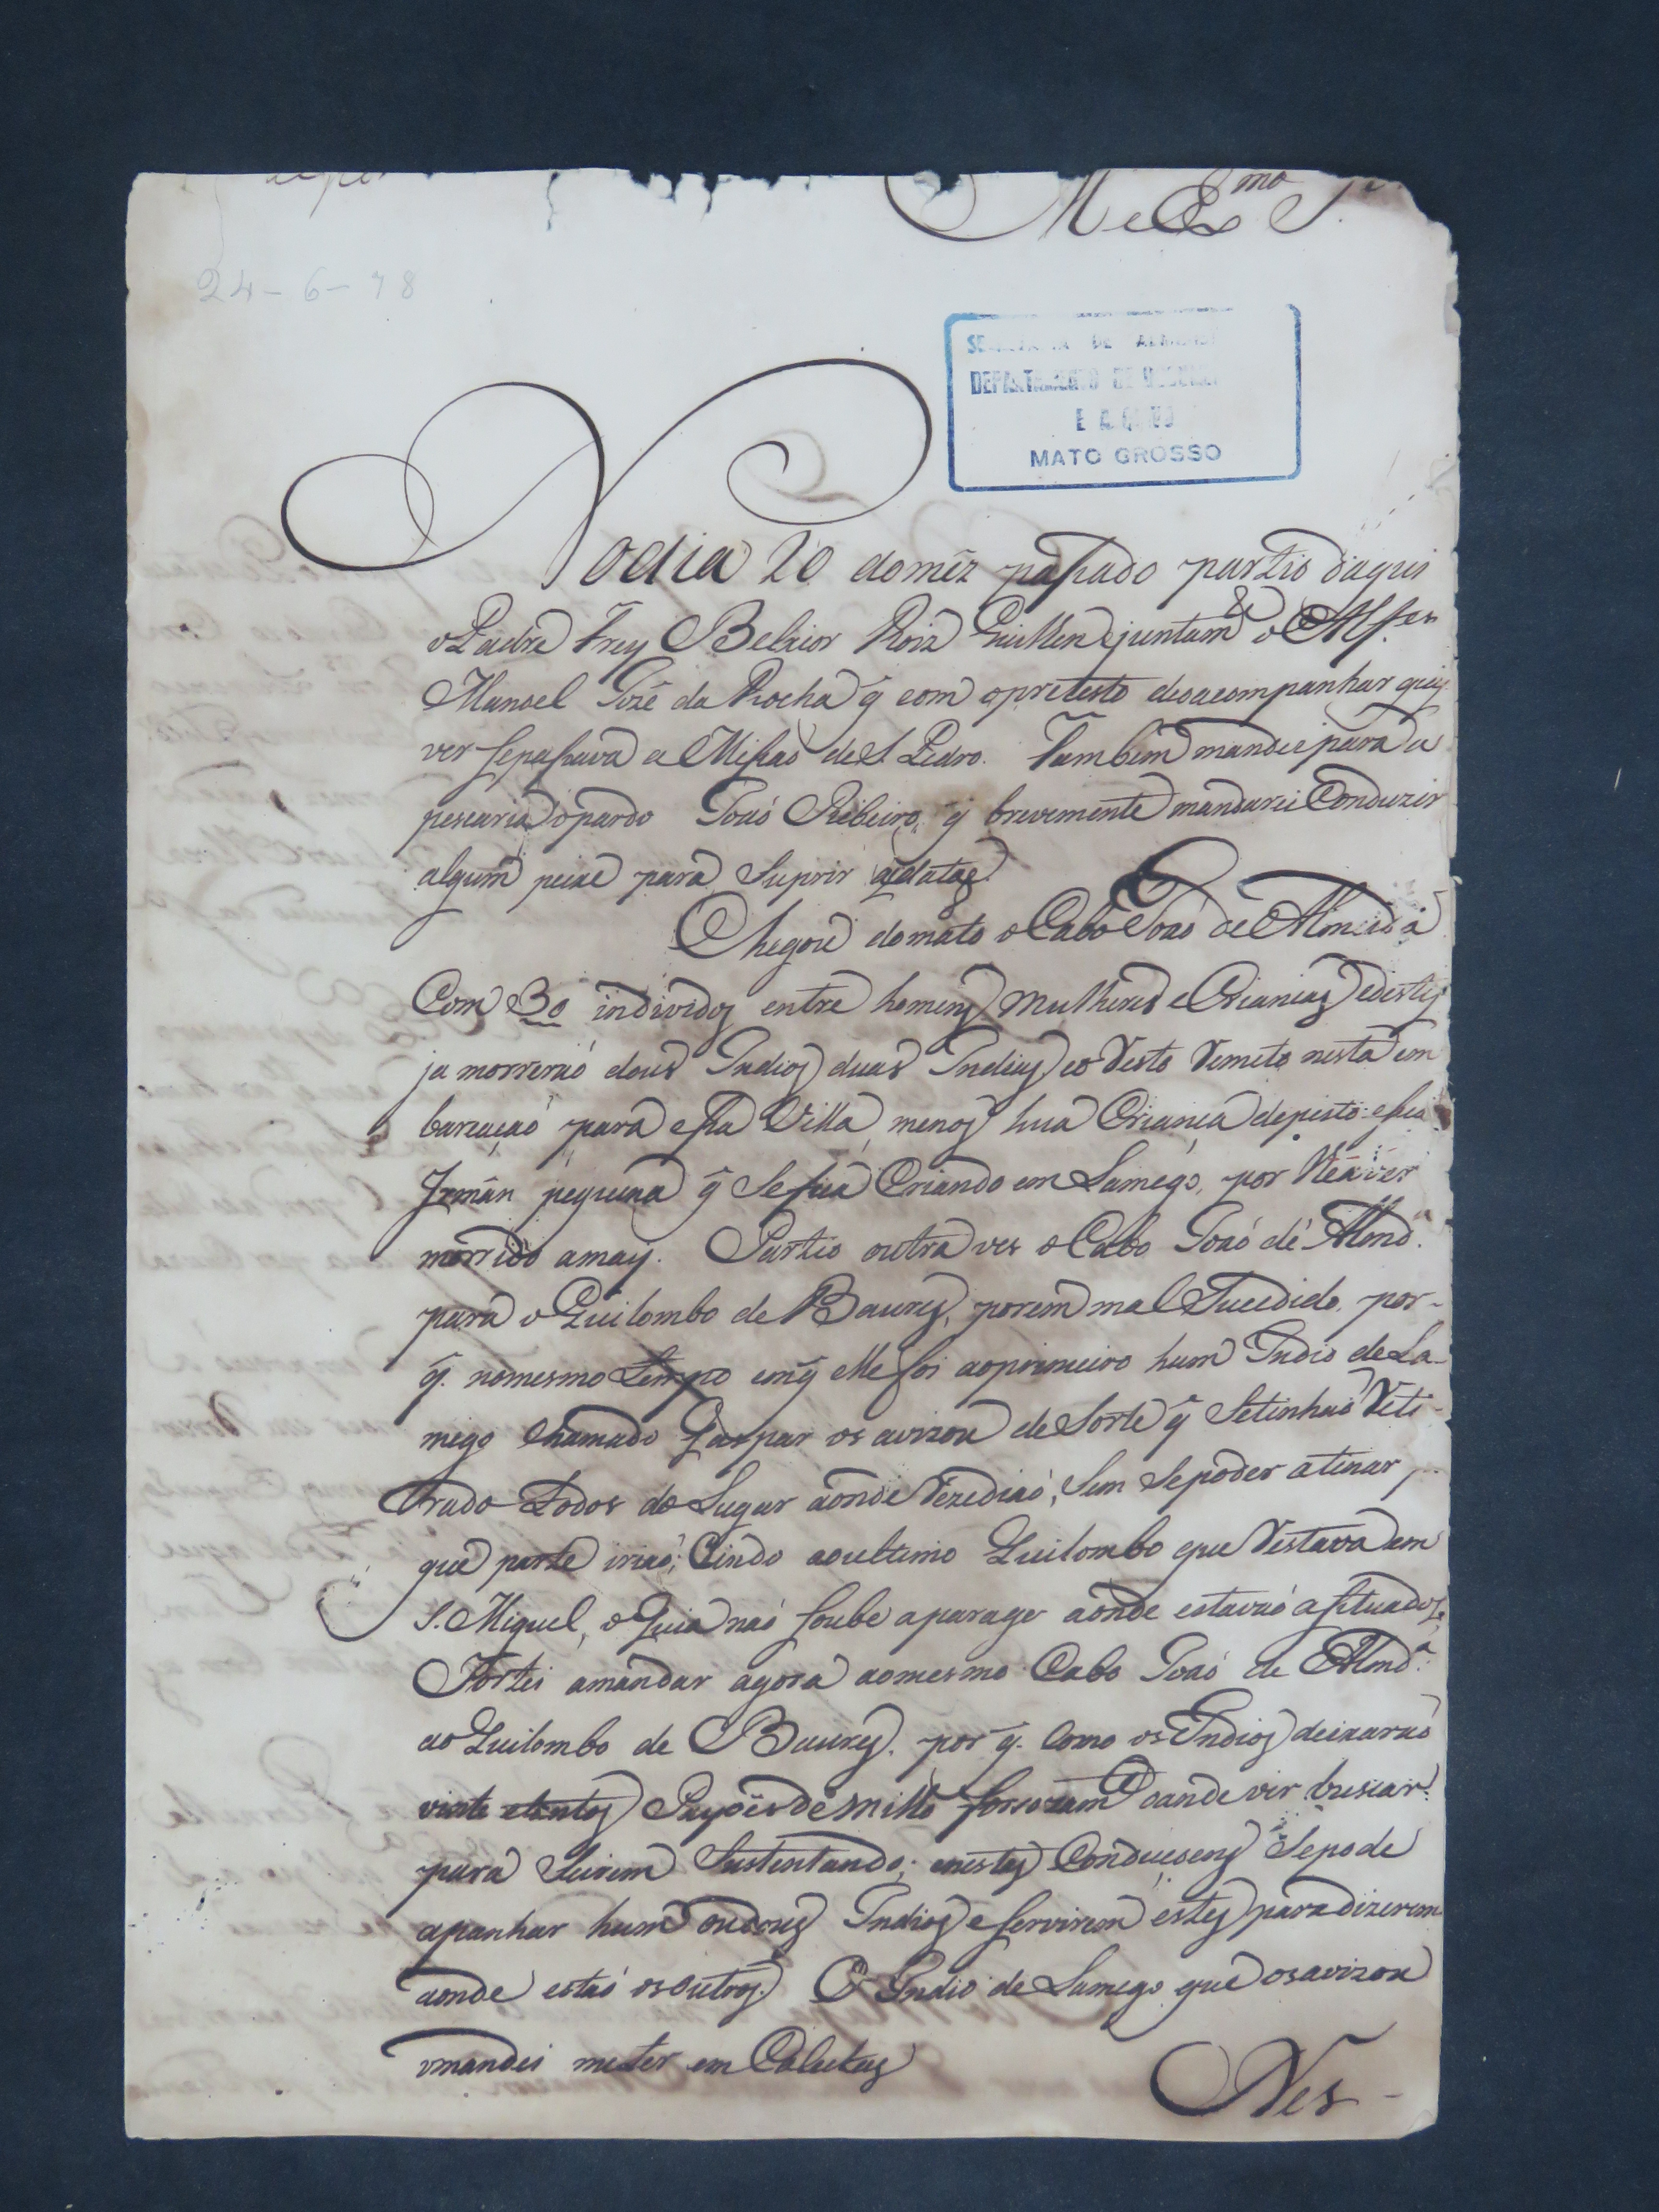 M e Ex.mo S.r
24-6-78
DE
DEPARTAMENTO DE
E
MATO GROSSO
No dia 20 do mêz paſsado partio daqui
o Padre Frey Belxior Roiz Guillen e juntam.te o Alf.es
Manoel Jozé da Rocha q̃ com o pretesto de o acompanhar quiz
ver se paſsava a Miſsaõ de S. Pedro. Tambem mandei para a
pescaria o pardo Joaõ Ribeiro, q̃ brevemente mandarei Conduzir
algum peixe para Suprir
Chegou do mato o Cabo Joaõ de Almeida
Com 30 individos entre homens Mulheres e Criancas e destes
ja morreraõ dous Indios duas Indias e o Resto Remeto nesta em
barcaçaõ para eſsa Villa, menos hua Crianca de peito e sua
Irmãn pequena q̃ Se fica Criando em Lamego, por lhe aver
morrido a may. Partio outra ves o Cabo Joaõ de Almd.a
para o Quilombo de Baures, porem mal Sucedido, por-
q̃. no mesmo tempo em q̃ elle foi ao primeiro hum Indio de La-
mego chamado Gaspar os avizou de Sorte q̃ Se tinhaõ Reti-
rado todos do Lugar aonde Rezediaõ, Sem Se poder atinar p.
que parte iriaõ; e indo ao ultimo Quilombo que Restava em
S. Miguel, o Guia naõ soube a parage aonde estavaõ aſituados,
Tortei a mandar agora ao mesmo Cabo Joaõ de Almd.a
ao Quilombo de Baures. por q̃. Como os Indios deixaraõ
vinte e tantos Payoes de milho forsozam.te o ande vir buscar
para Seirem Sustentando; e nestas Conduçoens Se pode
apanhar hum ou dous Indios e servirem estes para dizerem
aonde estaõ os outros. O Indio de Lamego que os avizou
o mandei meter em Calcetas
Nes-